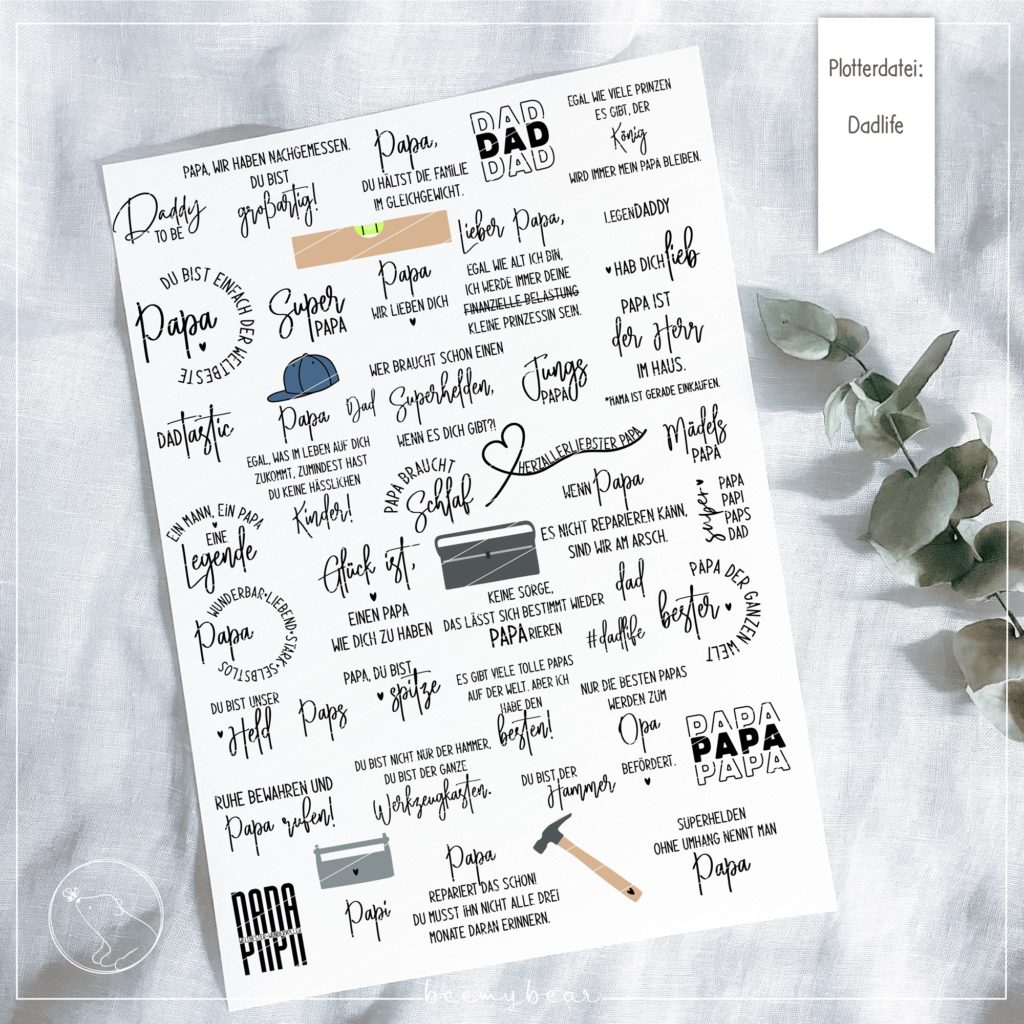 Plotterdatei:
Dadlife
PAPA, WIR HABEN NACHGEMESSEN.
DU BIST
großartig!
Papa,
DU HÄLTST DIE FAMILIE
IM GLEICHGEWICHT.
DAD
DAD
DAD
EGAL WIE VIELE PRINZEN
ES GIBT, DER
König
WIRD IMMER MEIN PAPA BLEIBEN.
Daddy
TO BE
Lieber Papa,
EGAL WIE ALT ICH BIN,
ICH WERDE IMMER DEINE
FINANZIELLE BELASTUNG
KLEINE PRINZESSIN SEIN.
LEGENDADDY
HAB DICH lieb
DU BIST EINFACH DER WELTBESTE
Papa
Super
PAPA
Papa
WIR LIEBEN DICH
PAPA IST
der Herr
IM HAUS.
*MAMA IST GERADE EINKAUFEN.
WER BRAUCHT SCHON EINEN
Superhelden,
WENN ES DICH GIBT?!
Jungs
PAPA
DADtastic
Papa
EGAL, WAS IM LEBEN AUF DICH
ZUKOMMT, ZUMINDEST HAST
DU KEINE HÄSSLICHEN
Kinder!
Dad
PAPA BRAUCHT
Schlaf
HERZALLERLIEBSTER PAPA
Mädels
PAPA
EIN MANN, EIN PAPA
EINE
Legende
WENN Papa
ES NICHT REPARIEREN KANN,
SIND WIR AM ARSCH.
super
PAPA
PAPI
PAPS
DAD
Glück ist,
EINEN PAPA
WIE DICH ZU HABEN
KEINE SORGE,
DAS LÄSST SICH BESTIMMT WIEDER
PAPARIEREN
dad
#dadlife
bester
PAPA DER GANZEN WELT
WUNDERBAR•LIEBEND•STARK•SELBSTLOS
Papa
DU BIST UNSER
Held
Paps
PAPA, DU BIST
spitze
ES GIBT VIELE TOLLE PAPAS
AUF DER WELT. ABER ICH
HABE DEN
besten!
NUR DIE BESTEN PAPAS
WERDEN ZUM
Opa
BEFÖRDERT.
PAPA
PAPA
PAPA
RUHE BEWAHREN UND
Papa rufen!
DU BIST NICHT NUR DER HAMMER,
DU BIST DER GANZE
Werkzeugkasten.
DU BIST DER
Hammer
SUPERHELDEN
OHNE UMHANG NENNT MAN
Papa
PAPA
PAPA
Papi
Papa
REPARIERT DAS SCHON!
DU MUSST IHN NICHT ALLE DREI
MONATE DARAN ERINNERN.
beemybear